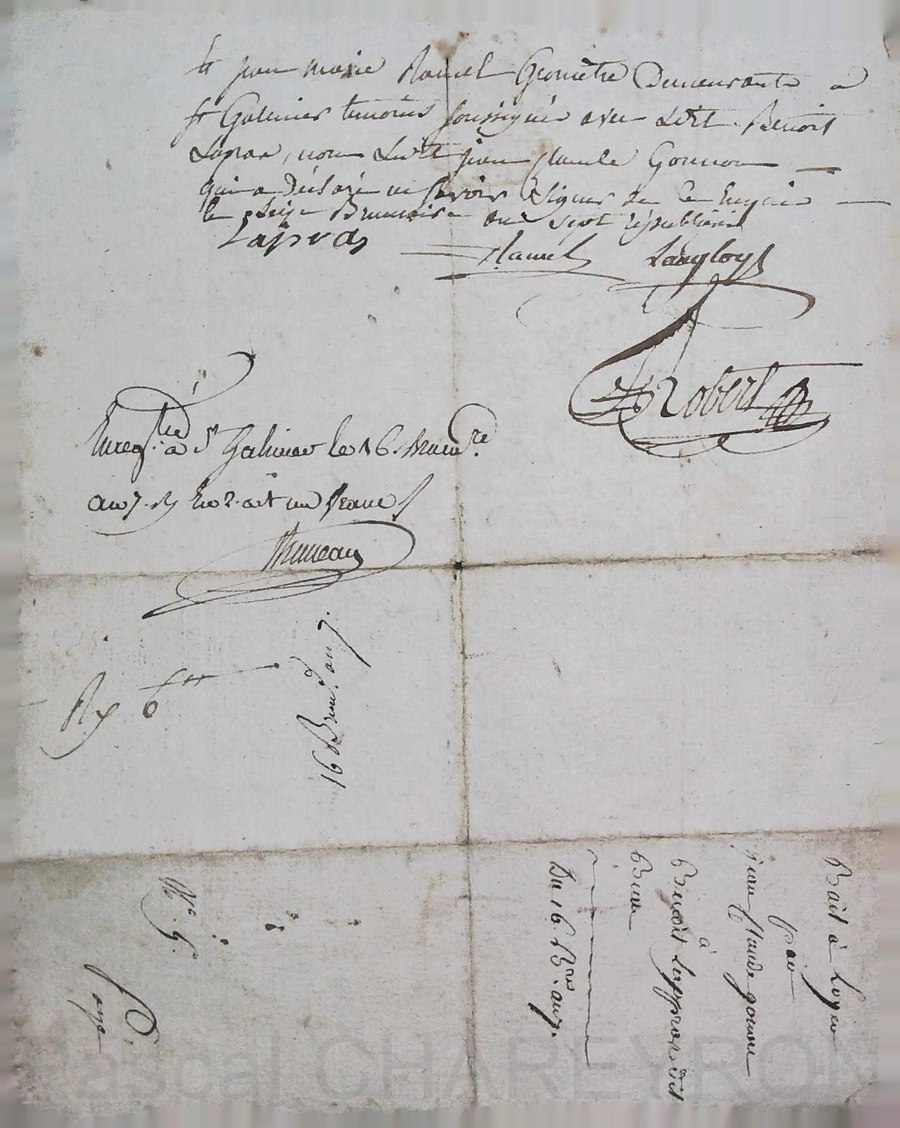 et jean marie Ramel Geomètre Demeurants à
st Galmier temoins soussignés avec ledit Benoit
Lapras, non Ledit jean Claude Gonnon
qui a Déclaré ne savoir Signer de ce Enquis
le Seize Brumaire an Sept républicain
Lapras
Ramel Langloys
Robert
Enreg.tré à St Galmier le 16. Brum.re
an 7. un franc
Rx 6tt
16 Brum. an 7.
Bail à Loyer
par
jean Claude gonon
à
Benoit Lappras dit
Du 16 B.re an 7.